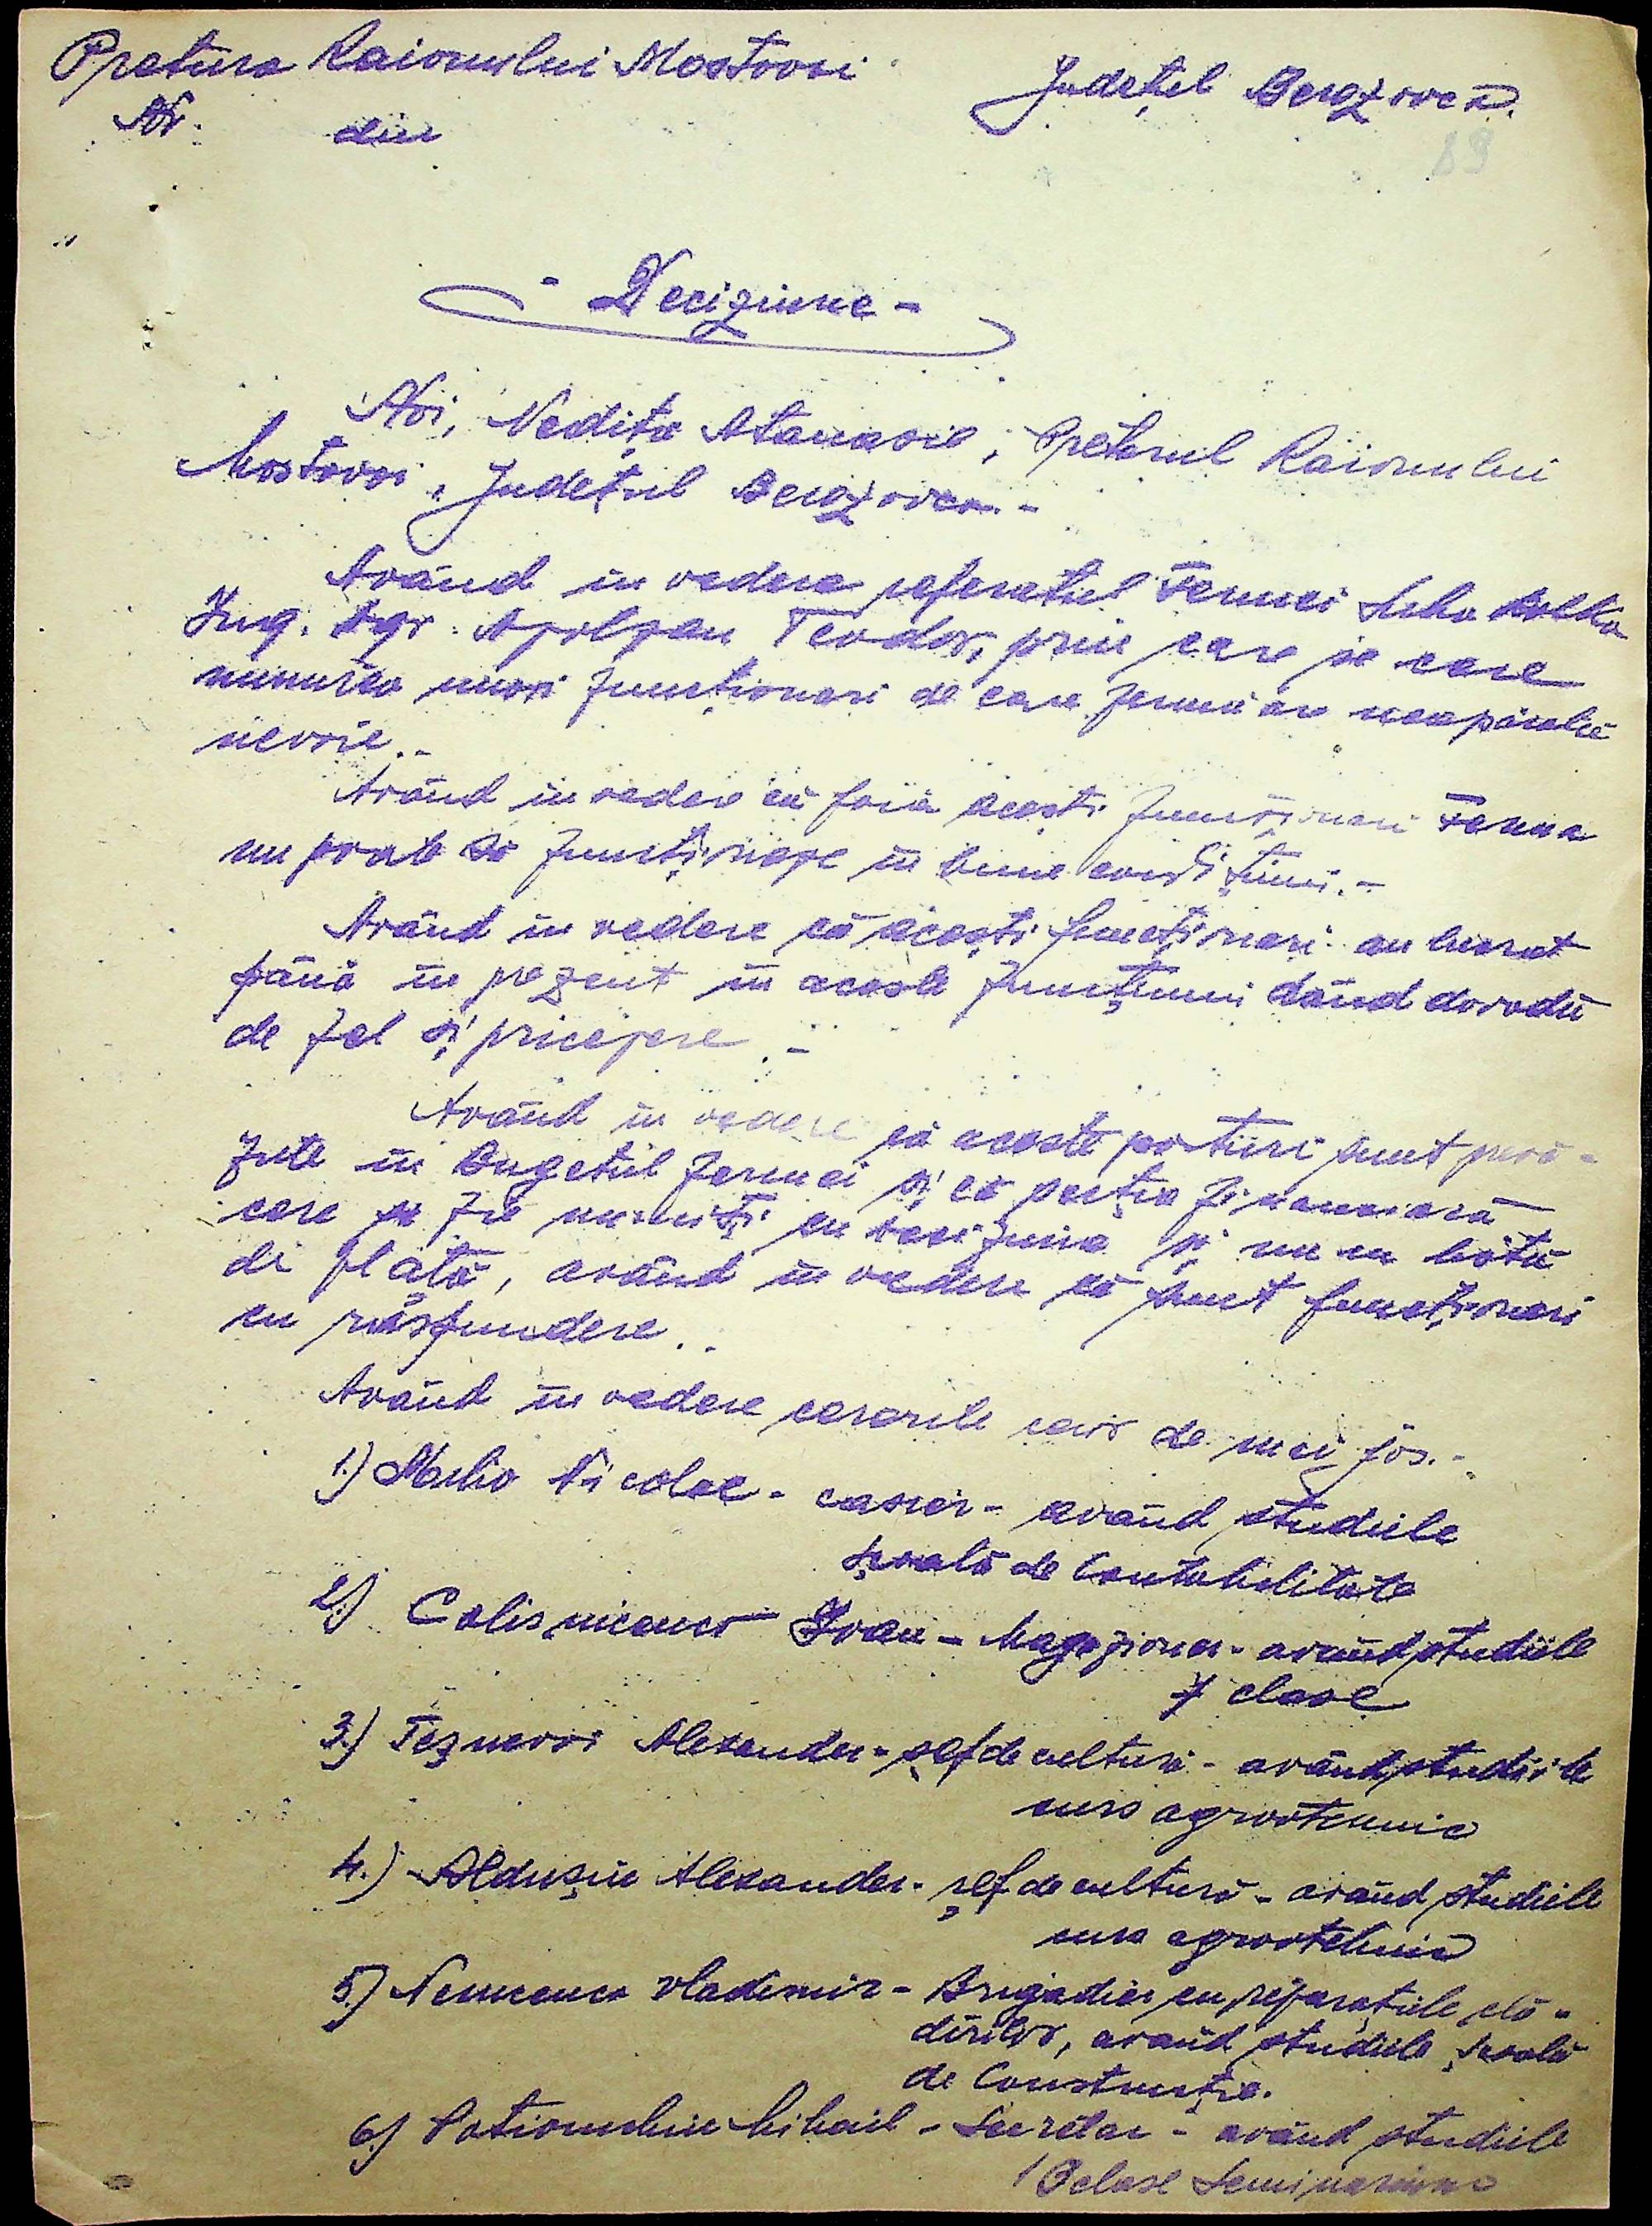 Pretura Raionului Mostovoi
Județul Berezovca.
Nr. din
89
- Deciziune -
Noi, Nedița Atanasie, Pretorul Raionului
Mostovoi, Județul Berezovca. -
Având in vedere referatul Fermei Suha
Ing. Agr. Apolzan Teodor, prin care se cere
numirea unori funcționari de care ferma are neapărată
nevoie. -
Având in vedere că fără acești funcționari Ferma
nu poate să funcționeze in bune condițiuni. -
Având in vedere că acești funcționari au lucrat
până in prezent in aceste funcțiuni dând dovadă
de zel și pricepere. -
Având in vedere că aceste posturi sunt prevă-
zute in Bugetul fermei și că secția financiară
cere să fie numiți cu deciziune și nu cu listă
de plată, având in vedere că sunt funcționari
cu răspundere. -
Având in vedere cererile celor de mai jos. -
1.) Nicolae - casier - având studiile
școală de Contabilitate
2.) Ivan - Magazioner - având studiile
7 clase
3.) Alexander - șef de cultură - având studiile
curs agrotehnic
4.) Aldușin Alexander - șef de cultură - având studiile
curs agrotehnic
5.) Nemcenco Vladimir - Brigadier cu reparațiile clă-
dirilor, având studiile școală
de Construcție.
6.) Mihail - Secretar - având studiile
clase Seminariu